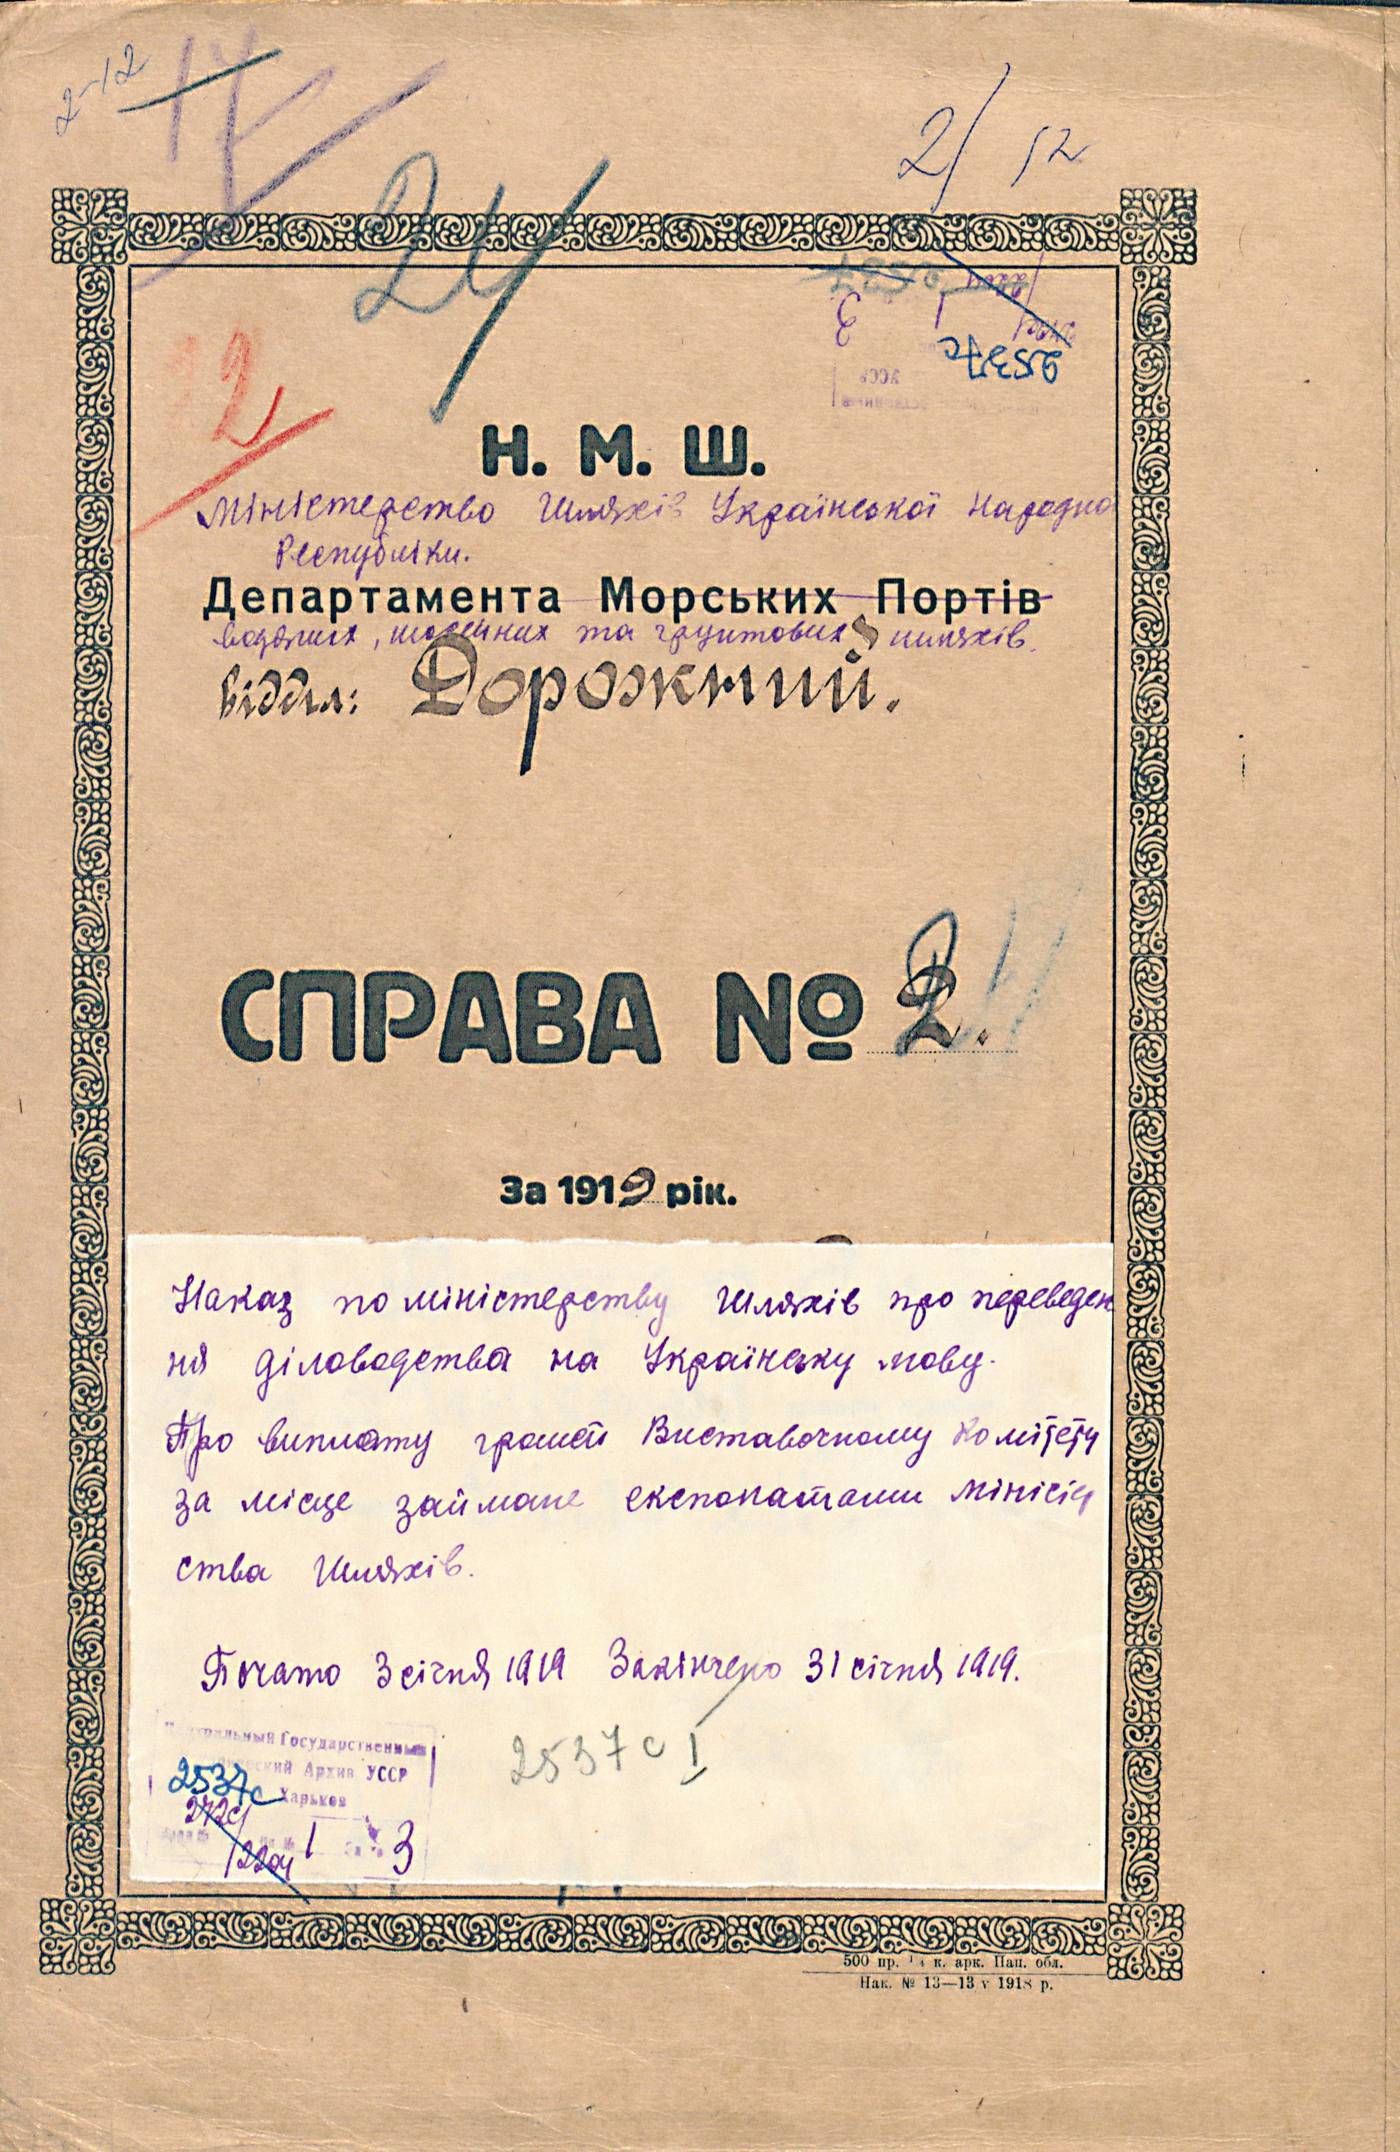 2-12
17
24
2/ 12
2537с
3
УССР
12
Н. М. Ш.
Міністерство Шляхів Української Народно
Республіки.
Департамента Морських Портів
водяних, шосейних та ґрунтових шляхів.
Відділ: Дорожний.
СПРАВА № 2.
За 1919 рік.
Наказ по міністерству Шляхів про переведен
ня діловодства на Українську мову.
Про виплату грошей Виставочному Комітету
за місце займане експонатами Міністер
ства Шляхів.
Почато 3 січня 1919 Закінчено 31 січня 1919.
2537 с I
Центральный Государственный
Архив УССР
2537с
Харьков
272с/
1220ч
1 3
500 пр. 1/4 к. арк. Пап. обл.
Нак. № 13—13 v 1918 р.